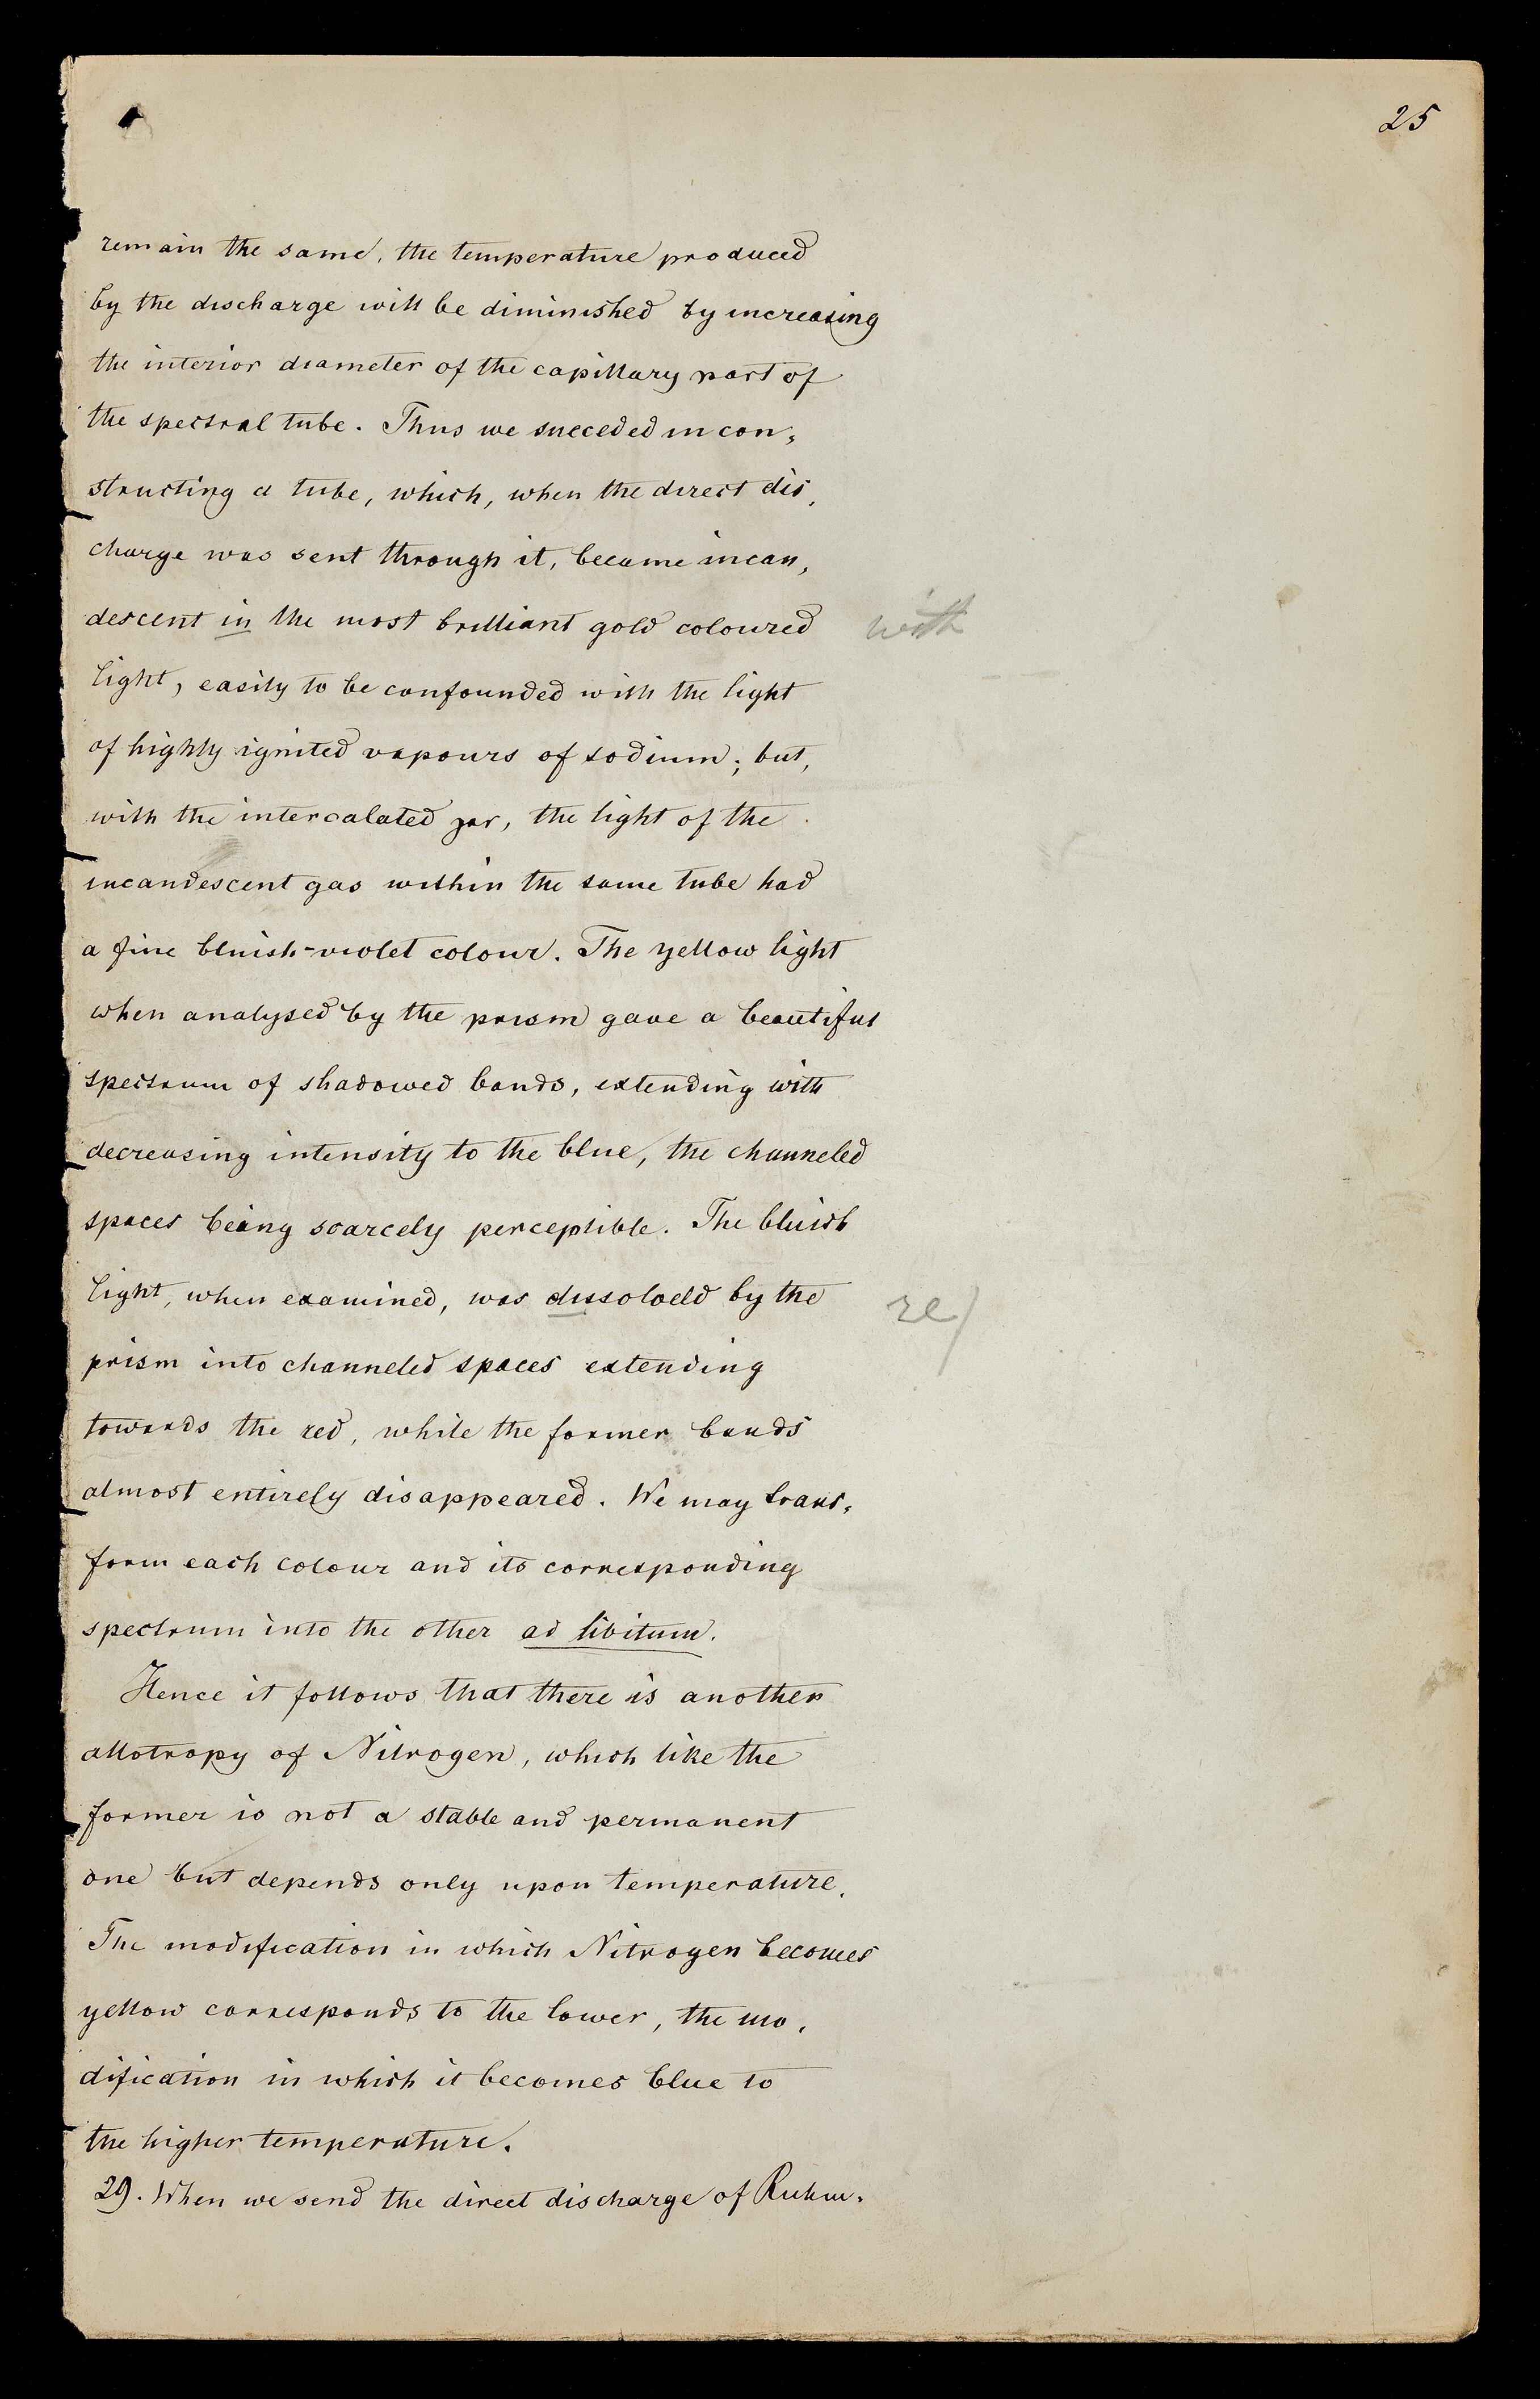 25
remain the same, the temperature produced
by the discharge will be diminished by increasing
the interior diameter of the capillary part of
the spectral tube. Thus we succeded in con,
structing a tube, which, when the direct dis,
charge was sent through it, became incan,
descent in the most brilliant gold coloured
with
light, easily to be confounded with the light
of highly ignited vapours of sodium; but,
with the intercalated jar, the light of the
incandescent gas within the same tube had
a fine bluish-violet colour. The yellow light
when analysed by the prism gave a beautiful
spectrum of shadowed bands, extending with
decreasing intensity to the blue, the channeled
spaces being scarcely perceptible. The bluish
light, when examined, was dissolved by the
re/
prism into channeled spaces extending
towards the red, while the former bands
almost entirely disappeared. We may trans,
form each colour and its corresponding
spectrum into the other ad libitum.
Hence it follows that there is another
allotropy of Nitrogen, which like the
former is not a stable and permanent
one but depends only upon temperature.
The modification in which Nitrogen becomes
yellow corresponds to the lower, the mo,
dification in which it becomes blue to
the higher temperature.
29. When we send the direct discharge of Ruhm,